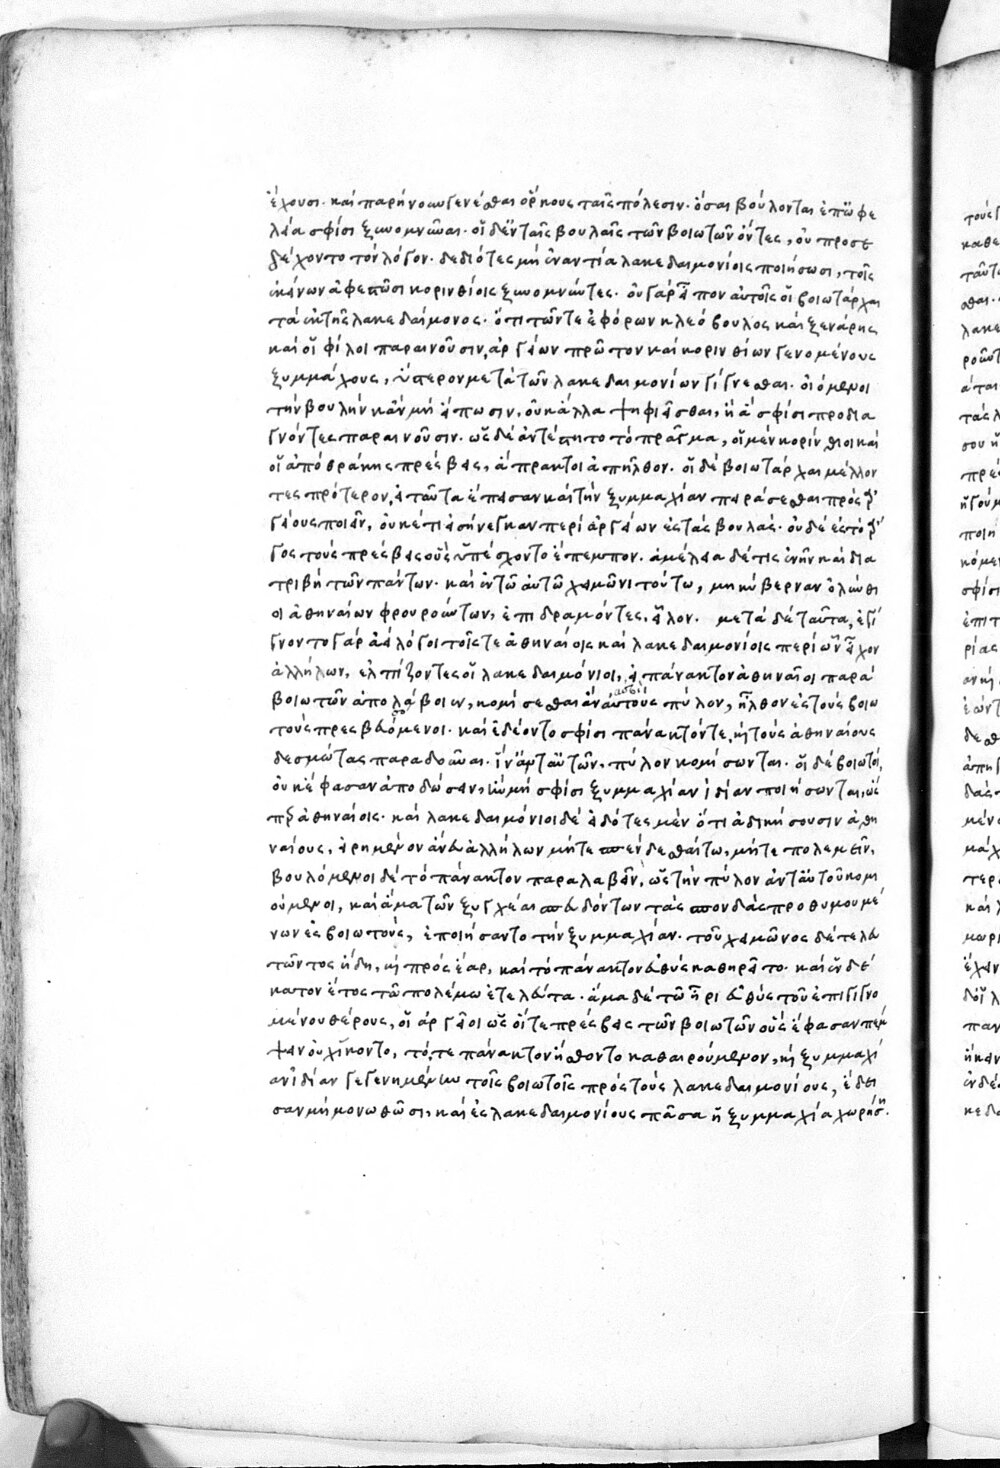 ἔχουσι. καὶ παρήνουν γενέσθαι ὅρκους ταῖς πόλεσιν. ὅσαι βούλονται ἐπ' ὠφε
λεία σφίσι ξυνομνῦναι. οἱ δ' ἐν ταῖς βουλαῖς τῶν βοιωτῶν ὄντες, οὐ προσε
δέχοντο τὸν λόγον. δεδιότες μὴ ἐναντία λακεδαιμονίοις ποιήσωσι, τοῖς
ἐκείνων ἀφεστῶσι κορινθίοις ξυνομνύντες. οὐ γὰρ εἶπον αὐτοῖς οἱ βοιωτάρχαι
τὰ ἐκ τῆς λακεδαίμονος. ὅτι τῶν τε ἐφόρων κλεόβουλος καὶ ξενάρης
καὶ οἱ φίλοι παραινοῦσιν, ἀργείων πρῶτον καὶ κορινθίων γενομένους
ξυμμάχους, ὕστερον μετὰ τῶν λακεδαιμονίων γίγνεσθαι. οἰόμενοι
τὴν βουλὴν κἂν μὴ εἴπωσιν, οὐκ ἄλλα ψηφιεῖσθαι, ἢ ἃ σφίσι προδια
γνόντες παραινοῦσιν. ὡς δὲ ἀντέστη τὸ πρᾶγμα, οἱ μὲν κορίνθιοι καὶ
οἱ ἀπὸ θράκης πρέσβεις, ἄπρακτοι ἀπῆλθον. οἱ δὲ βοιωτάρχαι μέλλον
τες πρότερον, εἰ ταῦτα ἔπεισαν καὶ τὴν ξυμμαχίαν πειράσεσθαι πρὸς ἀρ
γείους ποιεῖν, οὐκέτι ἐσήνεγκαν περὶ ἀργείων ἐς τὰς βουλάς. οὐδὲ ἐς τὸ ἄρ
γος τοὺς πρέσβεις οὓς ὑπέσχοντο ἔπεμπον. ἀμέλεια δέ τις ἐνῆν καὶ δια
τριβὴ τῶν πάντων. καὶ ἐν τῶ αὐτῶ χειμῶνι τούτω, μηκύβερναν ὀλύνθι
οι ἀθηναίων φρουρούντων, ἐπιδραμόντες, εἷλον. μετὰ δὲ ταῦτα, ἐγί
γνοντο γὰρ ἀεὶ λόγοι τοῖς τε ἀθηναίοις καὶ λακεδαιμονίοις περὶ ὧν εἶχον
ἀλλήλων, ἐλπίζοντες οἱ λακεδαιμόνιοι, εἰ πάνακτον ἀθηναῖοι παρὰ
βοιωτῶν ἀπολάβοιεν, κομίσεσθαι ἂν αὐτοὺς πύλον, ἦλθον ἐς τοὺς βοιω
τοὺς πρεσβευόμενοι. καὶ ἐδέοντο σφίσι πάνακτόν τε, καὶ τοὺς ἀθηναίους
δεσμώτας παραδοῦναι. ἵν' ἀντ' αὐτῶν, πύλον κομίσωνται. οἱ δὲ βοιωτοὶ,
οὐκ ἔφασαν ἀποδώσειν, ἢν μὴ σφίσι ξυμμαχίαν ἰδίαν ποιήσωνται, ὡς
περ ἀθηναίοις. καὶ λακεδαιμόνιοι δὲ εἰδότες μὲν ὅτι ἀδικήσουσιν ἀθη
ναίους, εἰρημένον ἄνευ ἀλλήλων μήτε σπένδεσθαί τω, μήτε πολεμεῖν,
βουλόμενοι δὲ τὸ πάνακτον παραλαβεῖν, ὡς τὴν πύλον ἀντ' αὐτοῦ κομι
ούμενοι, καὶ ἅμα τῶν ξυγχέαι σπευδόντων τὰς σπονδὰς προθυμουμέ
νων ἐς βοιωτοὺς, ἐποιήσαντο τὴν ξυμμαχίαν. τοῦ χειμῶνος δὲ τελευ
τῶντος ἤδη, καὶ πρὸς ἔαρ, καὶ τὸ πάνακτον εὐθὺς καθηρεῖτο. καὶ ἑνδέ
κατον ἔτος τῶ πολέμω ἐτελεύτα. ἅμα δὲ τῶ ἦρι εὐθὺς τοῦ ἐπιγιγνο
μένου θέρους, οἱ ἀργεῖοι ὡς οἵ τε πρέσβεις τῶν βοιωτῶν οὓς ἔφασαν πέμ
ψειν οὐχ ἷκοντο, τό, τε πάνακτον ἤσθοντο καθαιρούμενον, καὶ ξυμμαχί
αν ἰδίαν γεγενημένην τοῖς βοιωτοῖς πρὸς τοὺς λακεδαιμονίους, ἔδει
σαν μὴ μονωθῶσι, καὶ ἐς λακεδαιμονίους πᾶσα ἡ ξυμμαχία χωρήση.